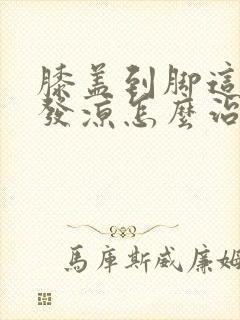 膝盖到腳這
發涼怎麼治
馬庫斯威廉姆